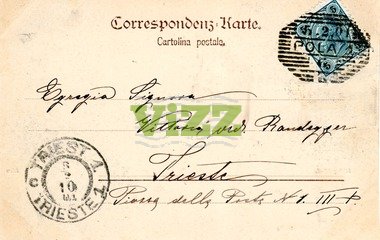 Correspondenz-Karte.
Cartolina postale.
POLA
Egregia Signora
VIZZ
Vittoria ved. Randegger
Trieste
Piazza della Posta N. 1 III p
TRIEST 1
10
TRIESTE 1